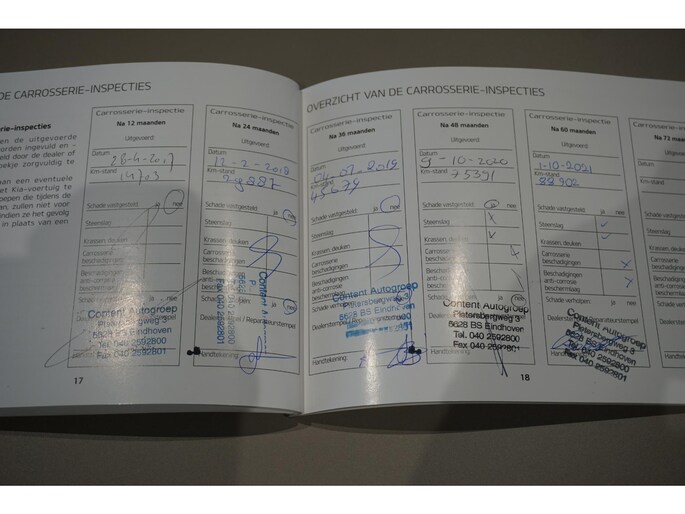 DE CARROSSERIE-INSPECTIES
OVERZICHT VAN DE CARROSSERIE-INSPECTIES
rie-inspecties
en de uitgevoerde
orden ingevuld en
eld door de dealer of
ekje zorgvuldig te
an een eventuele
et Kia-voertuig te
epen die tijdens de
an, zullen niet voor
inden ze het gevolg
in plaats van een
Carrosserie-inspectie
Na 12 maanden
Uitgevoerd:
Datum
26-4-2017
Km-stand
14703
Schade vastgesteld: ja nee
Steenslag
Krassen, deuken
Carrosserie
beschadigingen
Beschadigingen
anti-corrosie
beschermlaag
Content Autogroep
Pietersbergweg 3
5628 BS Eindhoven
Tel. 040 2592800
Fax 040 2592801
17
Carrosserie-inspectie
Na 24 maanden
Uitgevoerd:
Datum
12-2-2018
Km-stand
Schade vastgesteld: ja nee
Steenslag
Krassen, deuken
Carrosserie
beschadigingen
Beschadigingen
anti-corrosie
beschermlaag
Schade verholpen: ja nee
Dealerstempel / Reparateurstempel
Handtekening:
Carrosserie-inspectie
Na 36 maanden
Uitgevoerd:
Datum
Km-stand
45679
Schade vastgesteld: ja nee
Steenslag
Krassen, deuken
Carrosserie
beschadigingen
Beschadigingen
anti-corrosie
beschermlaag
Content Autogroep
Pietersbergweg 3
5628 BS Eindhoven
Handtekening:
Carrosserie-inspectie
Na 48 maanden
Uitgevoerd:
Datum
9-10-2020
Km-stand
75391
Schade vastgesteld: ja nee
Steenslag
Krassen, deuken
Carrosserie
beschadigingen
Beschadigingen
anti-corrosie
beschermlaag
Schade verholpen: ja nee
Content Autogroep
Pietersbergweg 3
5628 BS Eindhoven
Tel. 040 2592800
Fax 040 2592801
18
Carrosserie-inspectie
Na 60 maanden
Uitgevoerd:
Datum
1-10-2021
Km-stand
88902
Schade vastgesteld: ja nee
Steenslag
Krassen, deuken
Carrosserie
beschadigingen
Beschadigingen
anti-corrosie
beschermlaag
Schade verholpen: ja nee
Content Autogroep
Pietersbergweg 3
5628 BS Eindhoven
Tel. 040 2592800
Fax 040 2592801
Carrosserie
Na 72 m
Uitge
Datum
Km-stand
Schade vastge
Steenslag
Krassen, deu
Carrosserie
beschadig
Beschadig
anti-corro
bescherm
Schade v
Dealers
Handt